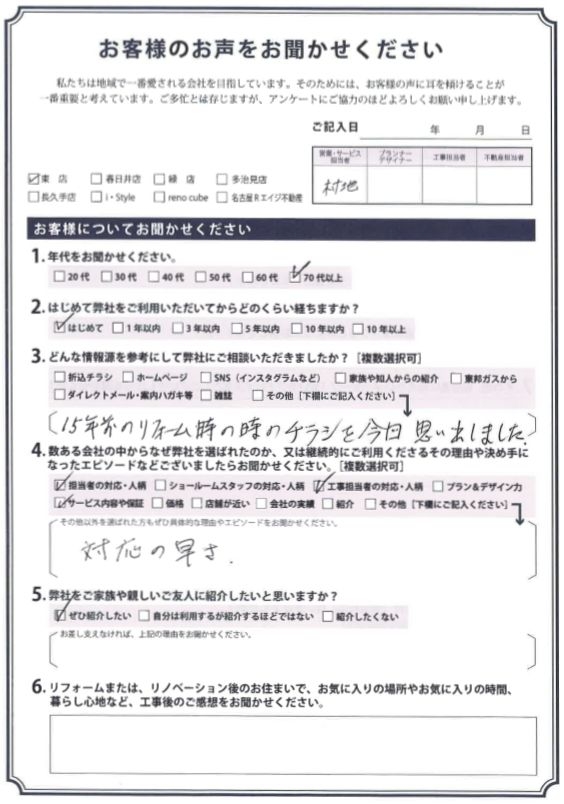 お客様のお声をお聞かせください
私たちは地域で一番愛される会社を目指しています。そのためには、お客様の声に耳を傾けることが
一番重要と考えています。ご多忙とは存じますが、アンケートにご協力のほどよろしくお願い申し上げます。
ご記入日 年 月 日
営業・サービス担当者 プランナーデザイナー 工事担当者 不動産担当者
村地
☑東 店 □春日井店 □緑 店 □多治見店
□長久手店 □i・Style □reno cube □名古屋Rエイジ不動産
お客様についてお聞かせください
1. 年代をお聞かせください。
□20代 □30代 □40代 □50代 □60代 ☑70代以上
2. はじめて弊社をご利用いただいてからどのくらい経ちますか？
☑はじめて □1年以内 □3年以内 □5年以内 □10年以内 □10年以上
3. どんな情報源を参考にして弊社にご相談いただきましたか？［複数選択可］
□折込チラシ □ホームページ □SNS（インスタグラムなど） □家族や知人からの紹介 □東邦ガスから
□ダイレクトメール・案内ハガキ等 □雑誌 □その他［下欄にご記入ください］
15年前のリフォーム時の時のチラシを今回思い出しました.
4. 数ある会社の中からなぜ弊社を選ばれたのか、又は継続的にご利用くださるその理由や決め手に
なったエピソードなどございましたらお聞かせください。［複数選択可］
☑担当者の対応・人柄 □ショールームスタッフの対応・人柄 ☑工事担当者の対応・人柄 □プラン&デザイン力
☑サービス内容や保証 □価格 □店舗が近い □会社の実績 □紹介 □その他［下欄にご記入ください］
その他以外を選ばれた方もぜひ具体的な理由やエピソードをお聞かせください。
対応の早さ.
5. 弊社をご家族や親しいご友人に紹介したいと思いますか？
☑ぜひ紹介したい □自分は利用するが紹介するほどではない □紹介したくない
お差し支えなければ、上記の理由をお聞かせください。
6. リフォームまたは、リノベーション後のお住まいで、お気に入りの場所やお気に入りの時間、
暮らし心地など、工事後のご感想をお聞かせください。